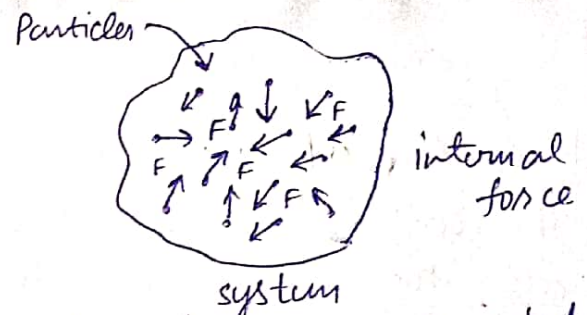 Particles
F
F
F
F
F
internal
force
system